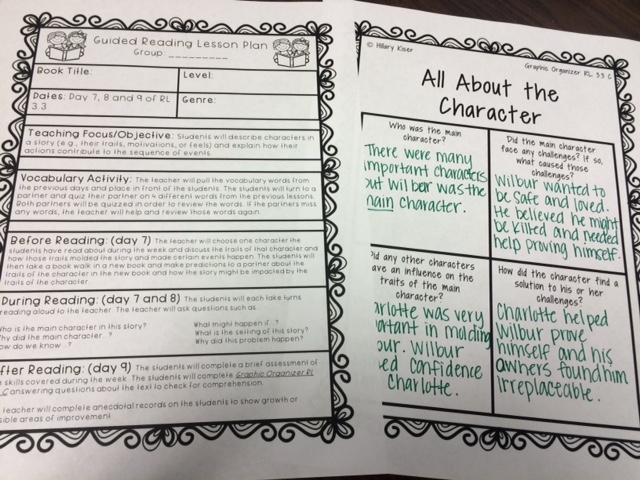 Guided Reading Lesson Plan
Group: _________
Book Title:
Level:
Dates: Day 7, 8 and 9 of RL
3.3
Genre:
Teaching Focus/Objective: Students will describe characters in
a story (e.g., their traits, motivations, or feels) and explain how their
actions contribute to the sequence of events.
Vocabulary Activity: The teacher will pull the vocabulary words from
the previous days and place in front of the students. The students will turn to a
partner and quiz their partner on 4 different words from the previous lessons.
Both partners will be quizzed in order to review the words. If the partners miss
any words, the teacher will help and review those words again.
Before Reading: (day 7) The teacher will choose one character the
students have read about during the week and discuss the traits of that character and
how those traits molded the story and made certain events happen. The students will
then take a book walk in a new book and make predictions to a partner about the
traits of the character in the new book and how the story might be impacted by the
traits of the character.
During Reading: (day 7 and 8) The students will each take turns
reading aloud to the teacher. The teacher will ask questions such as:
Who is the main character in this story?
What might happen if...?
Why did the main character...?
What is the setting of this story?
How do we know...?
Why did this problem happen?
After Reading: (day 9) The students will complete a brief assessment of
skills covered during the week. The students will complete Graphic Organizer RL
C answering questions about the text to check for comprehension.
teacher will complete anecdotal records on the students to show growth or
areas of improvement.
© Hillary Kiser
Graphic Organizer RL 3.3 C
All About the
Character
Who was the main
character?
There were many
important characters
but Wilbur was the
main character.
Did the main character
face any challenges? If so,
what caused those
challenges?
Wilbur wanted to
be safe and loved.
He believed he might
be killed and needed
help proving himself.
Did any other characters
have an influence on the
traits of the main
character?
Charlotte was very
important in molding
Wilbur
confidence
Charlotte.
How did the character find a
solution to his or her
challenges?
Charlotte helped
Wilbur prove
himself and his
owners found him
irreplaceable.